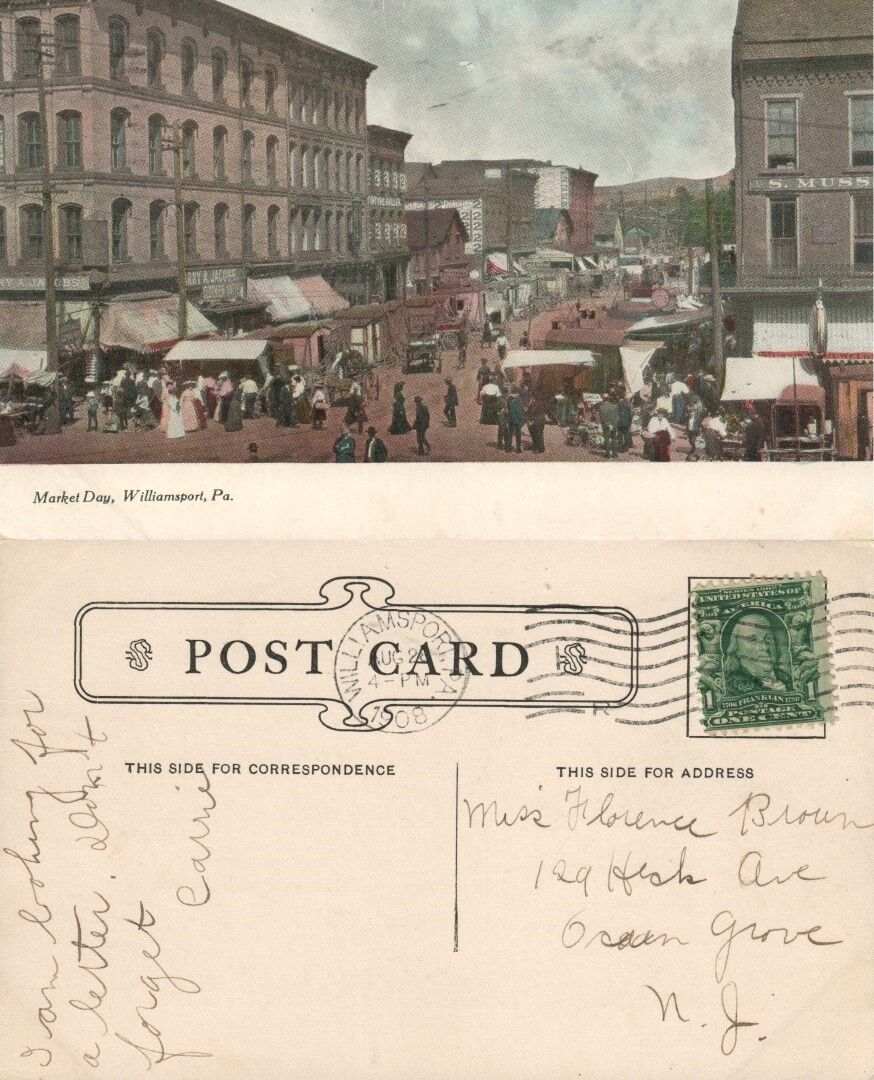 RY A. JACOBS
RY A. JACOBS
S. MUSS
Market Day, Williamsport, Pa.
POST CARD
WILLIAMSPORT, PA.
AUG 2
4-PM
1908
SERIES 1902
UNITED STATES OF
AMERICA
1 1
1706 FRANKLIN 1790
POSTAGE
ONE CENT
THIS SIDE FOR CORRESPONDENCE
THIS SIDE FOR ADDRESS
I am looking for
a letter. Don't
forget Carrie
Miss Florence Brown
129 Heck Ave
Ocean Grove
N. J.